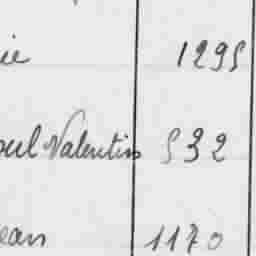 ie 1295
oul Valentin 532
ean 1170